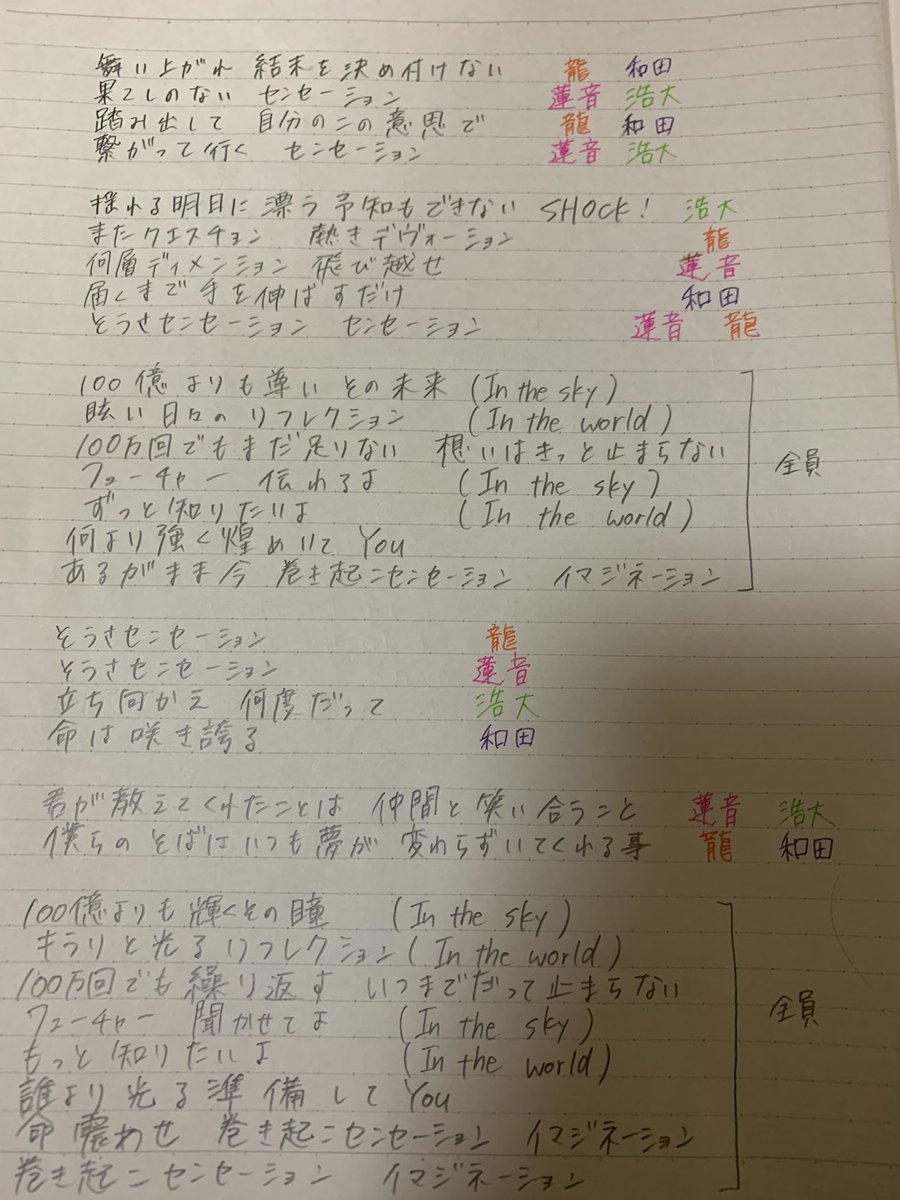 舞い上がれ 結末を決め付けない 龍 和田
果てしのない センセーション 蓮音 浩大
踏み出して 自分のこの意思で 龍 和田
繋がって行く センセーション 蓮音 浩大
揺れる明日に漂う予知もできない SHOCK! 浩大
またクエスチョン 熱きデヴォーション 龍
何層ディメンション 飛び越せ 蓮音
届くまで手を伸ばすだけ 和田
そうさセンセーション センセーション 蓮音 龍
100億よりも尊いその未来 (In the sky)
眩い日々のリフレクション (In the world)
100万回でもまだ足りない 想いはきっと止まらない
フューチャー 伝われるよ (In the sky)
ずっと知りたいよ (In the world)
何より強く煌めいて You
あるがまま今 巻き起こセンセーション イマジネーション
全員
そうさセンセーション 龍
そうさセンセーション 蓮音
立ち向かえ 何度だって 浩大
命は咲き誇る 和田
君が教えてくれたことは 仲間と笑い合うこと 蓮音 浩大
僕らのそばにいつも夢が 変わらずいてくれる事 龍 和田
100億よりも輝くその瞳 (In the sky)
キラリと光るリフレクション (In the world)
100万回でも繰り返す いつまでだって止まらない
フューチャー 聞かせてよ (In the sky)
もっと知りたいよ (In the world)
誰より光る準備して You
命震わせ 巻き起こセンセーション イマジネーション
巻き起こセンセーション イマジネーション
全員